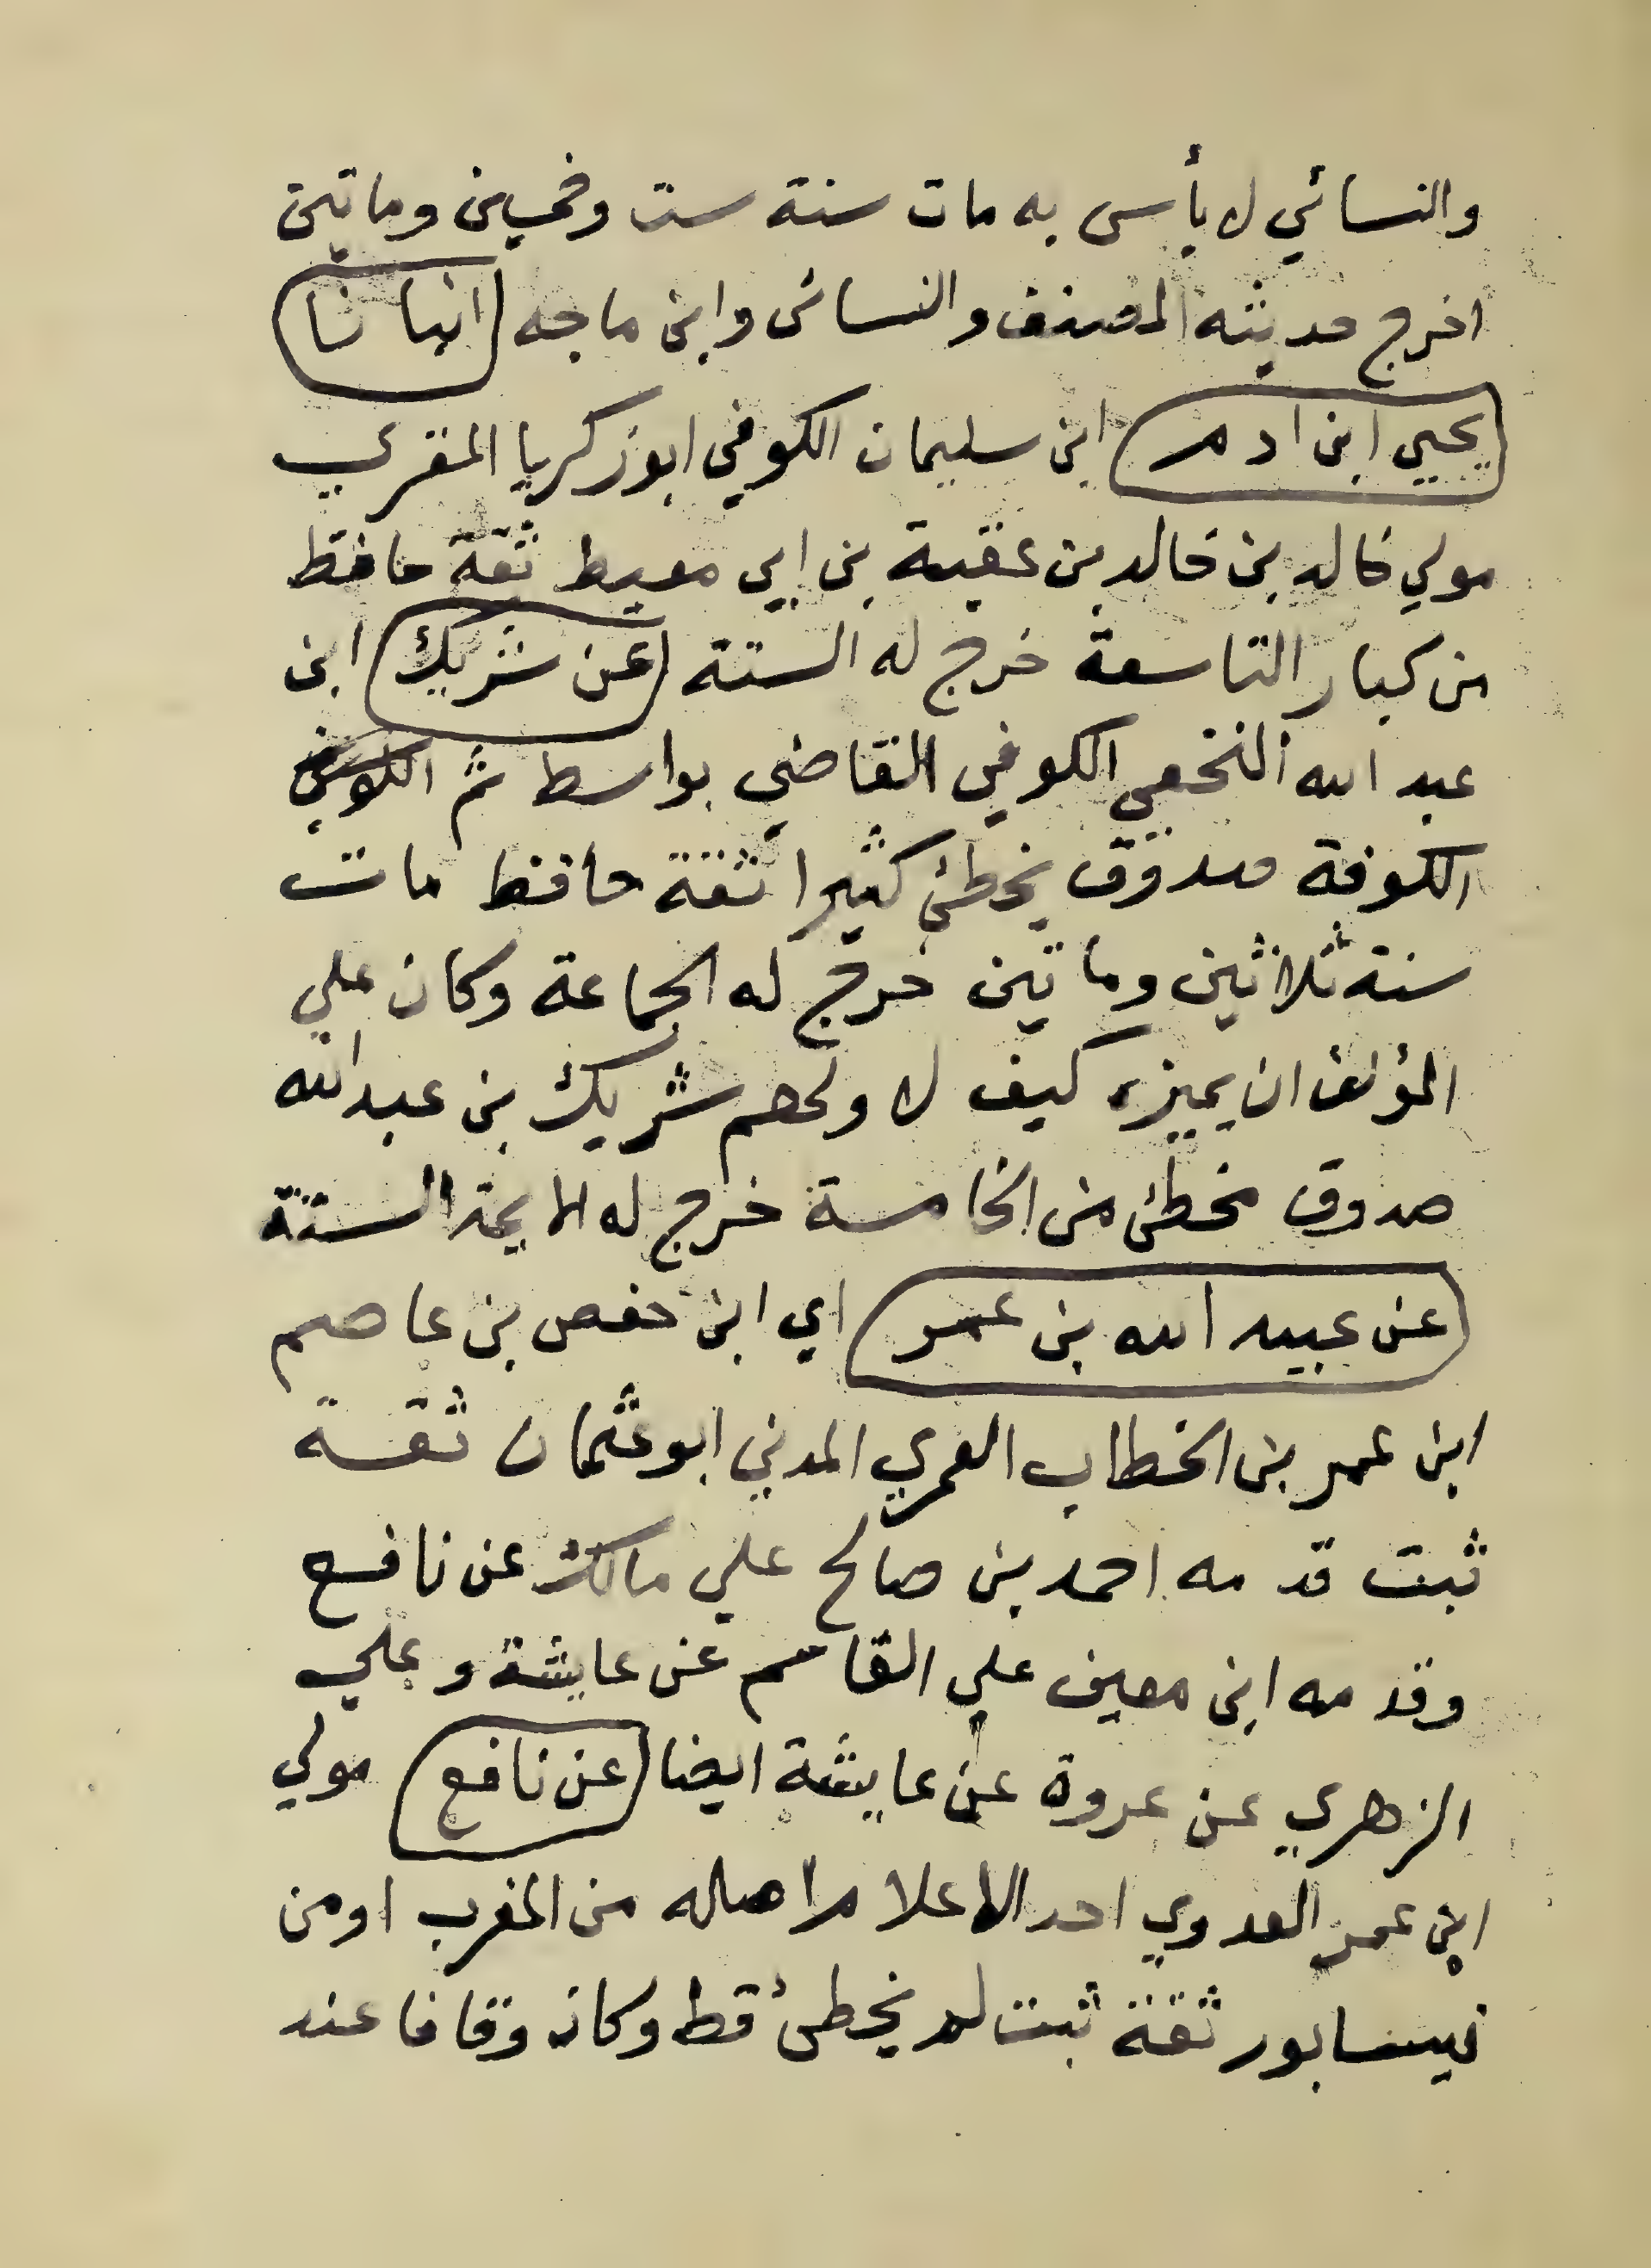 والنسائي لا بأس به مات سنة ست وخمسين وماتين
اخرج حديثه المصنف والنسائى وابن ماجه انبا نا
يحيي ابن ادم ابن سليمان الكوفي ابوزكريا المقري
مولي خالد بن خالد بن عقبة بن ابي معيط ثقة حافظ
من كبار التاسعة خرج له الستة عن شريك ابن
عبد الله النخعي الكوفي القاضي بواسط ثم الكوفي
الكوفة صدوق يخطئ كثيرا ثقة حافظ مات
سنة ثلاثين وماتين خرج له الجماعة وكان علي
المؤلف ان يميزه كيف لا ولهم شريك بن عبد الله
صدوق مخطئ من الخامسة خرج له الايمة الستة
عن عبيد الله بن عمر اي ابن حفص بن عاصم
ابن عمر بن الخطاب العمري المدني ابوعثمان ثقة
ثبت قدمه احمد بن صالح علي مالك عن نافع
وقدمه ابن معين علي القاسم عن عايشة وعلي
الزهري عن عروة عن عايشة ايضا عن نافع مولي
ابن عمر العدوي احد الاعلام اصله من المغرب اومن
نيسابور ثقة ثبت لم يخطئ قط وكان وقافا عند